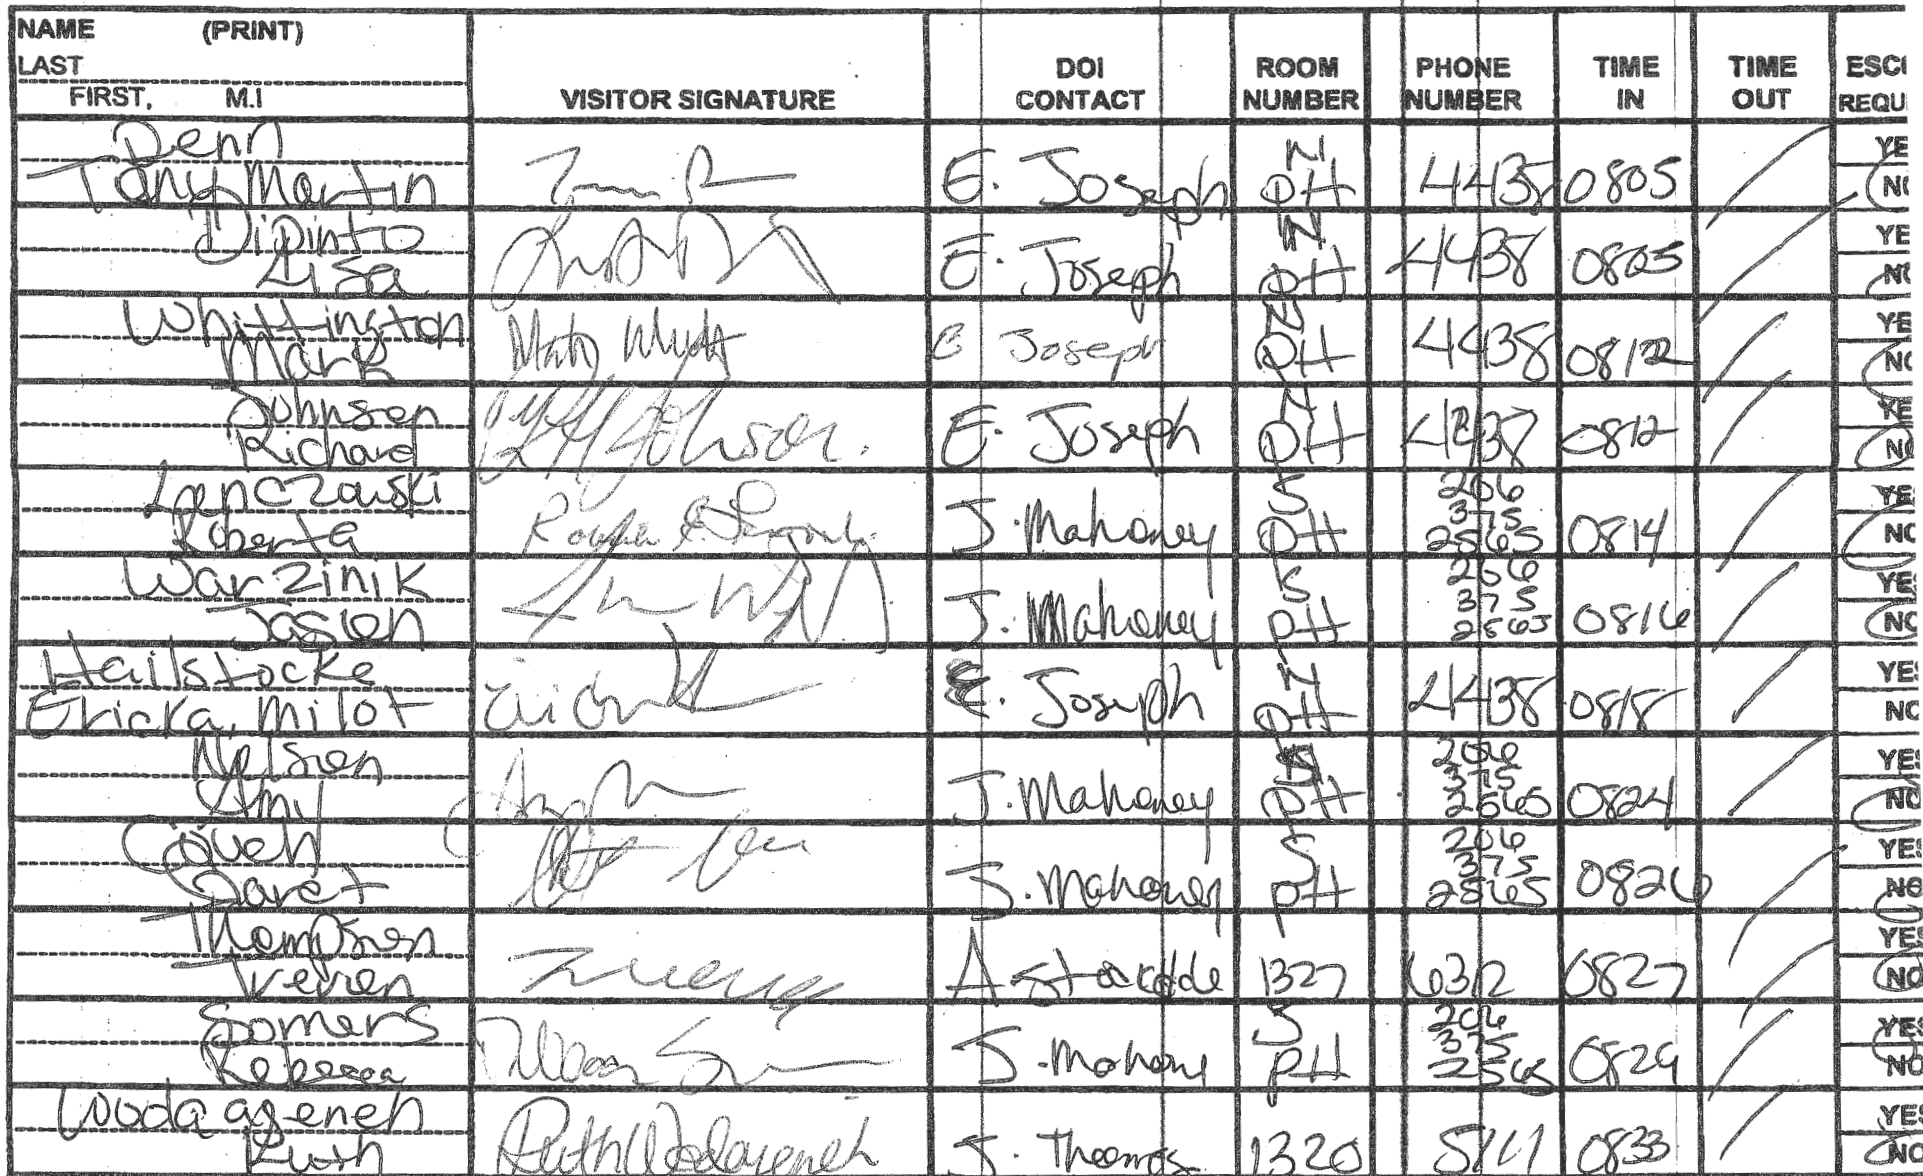 NAME (PRINT)
LAST
FIRST, M.I
VISITOR SIGNATURE
DOI CONTACT
ROOM NUMBER
PHONE NUMBER
TIME IN
TIME OUT
ESC
REQU
Denn
Tony Martin
E. Joseph N PH 4438 0805 YE NO
DiPinto
Lisa
E. Joseph N PH 4438 0805 YE NO
Whittington
Mark
E Joseph N PH 4438 0812 YE NO
Johnson
Richard
Johnson.
E. Joseph N PH 0812 YE NO
Roberta
J. Mahoney S PH 206 375 2565 0814 YE NO
Warzinik
Jason
J. Mahoney S PH 206 375 2565 0816 YES NO
Hailstocke
Ericka, Milot
E. Joseph N PH 4438 0818 YES NO
Nelson
Amy
J. Mahoney S PH 206 375 2565 0824 YES NO
J. Mahoney S PH 206 375 2565 0826 YES NO
Thompson
1327 6312 0827 YES NO
Somers
Rebecca
J. Mahoney S PH 206 375 2565 0829 YES NO
Ruth
Ruth
J. Thomas 1320 0833 YES NO